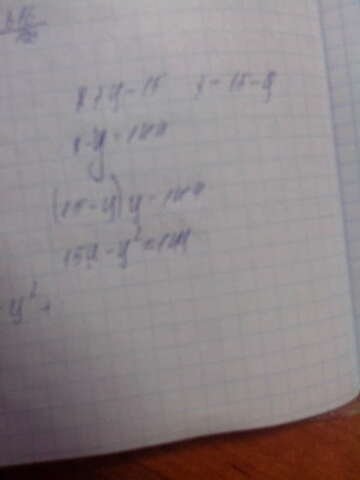 x+y=15 x=15-y
x·y=144
(15-y)y=144
15y-y²=144
-y²+